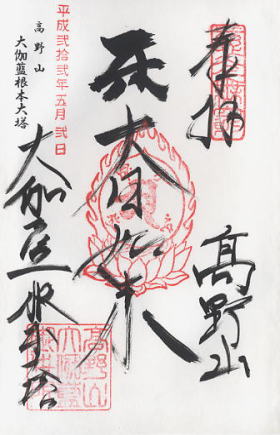 奉拝
高野山
大日如来
大伽藍根本大塔
平成弐拾弐年五月弐日
高野山
大伽藍根本大塔